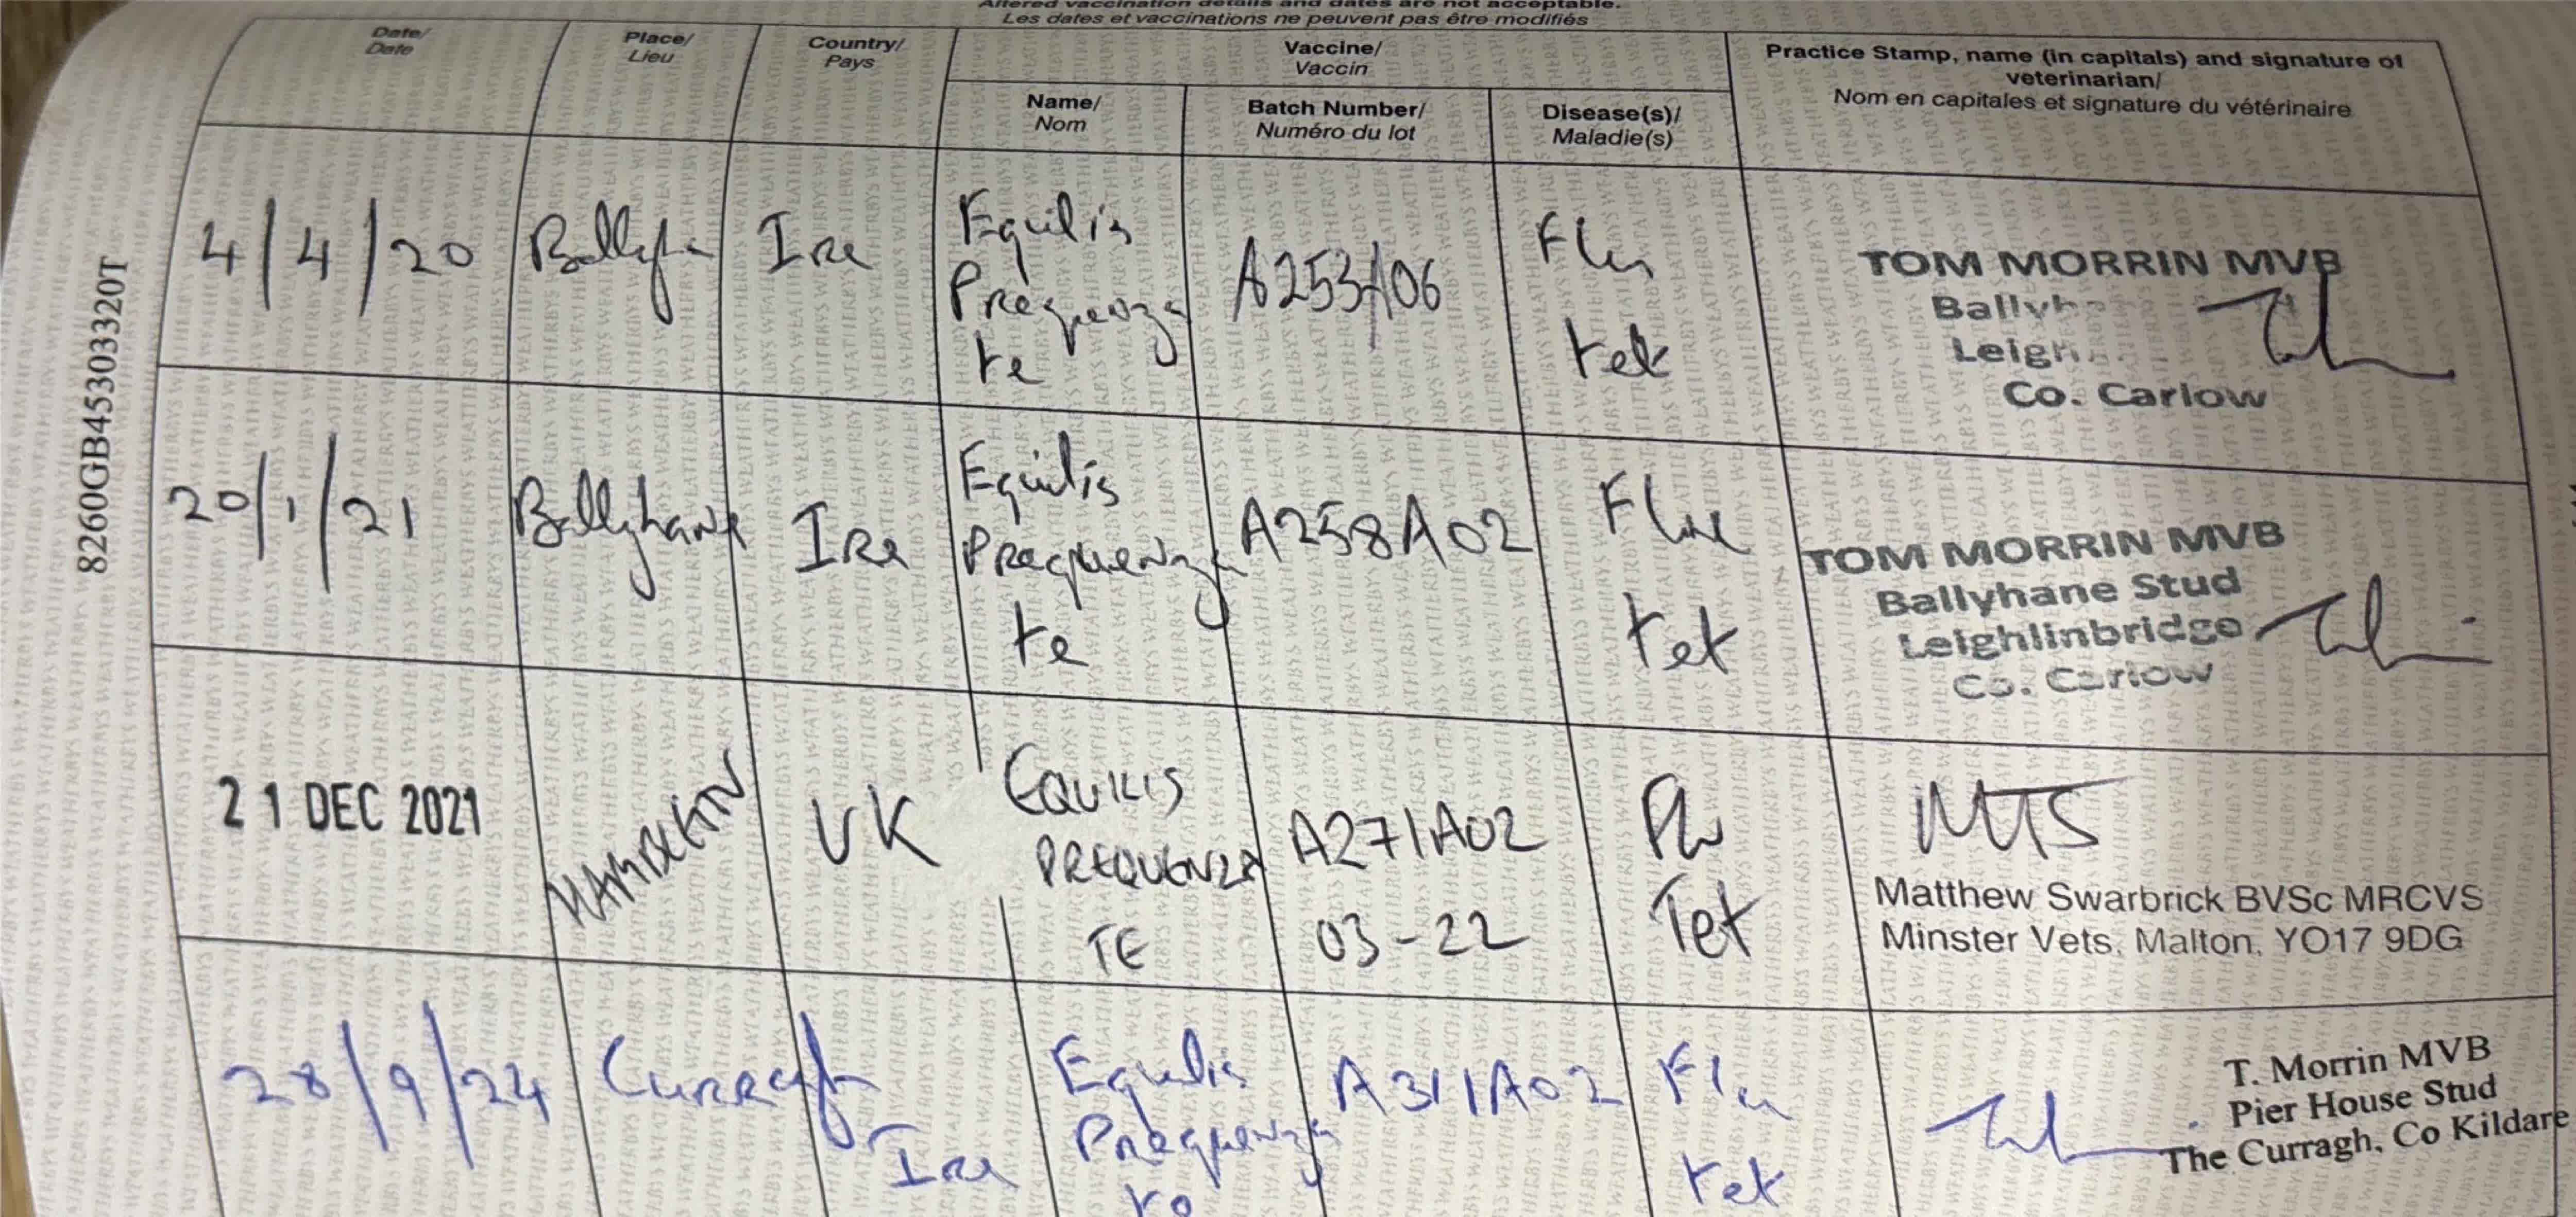 Altered vaccination details and dates are not acceptable.
Les dates et vaccinations ne peuvent pas être modifiés
Date/
Date
Place/
Lieu
Country/
Pays
Vaccine/
Vaccin
Name/
Nom
Batch Number/
Numéro du lot
Disease(s)/
Maladie(s)
Practice Stamp, name (in capitals) and signature of
veterinarian/
Nom en capitales et signature du vétérinaire
8260GB45303320T
4/4/20
Ire
Equilis
Prequenza
te
A253A06
Flu
tet
TOM MORRIN MVB
Co. Carlow
20/1/21
Ballyhane
Ire
Equilis
Prequenza
te
A258A02
Flu
tet
TOM MORRIN MVB
Ballyhane Stud
Leighlinbridge
Co. Carlow
21 DEC 2021
HAMBLETON
UK
EQUILIS
PREQUENZA
TE
A271A02
03-22
Flu
Tet
Matthew Swarbrick BVSc MRCVS
Minster Vets, Malton, YO17 9DG
28/9/24
Curragh
Ire
Equilis
Prequenza
te
A311A02
Flu
tet
T. Morrin MVB
Pier House Stud
The Curragh, Co Kildare